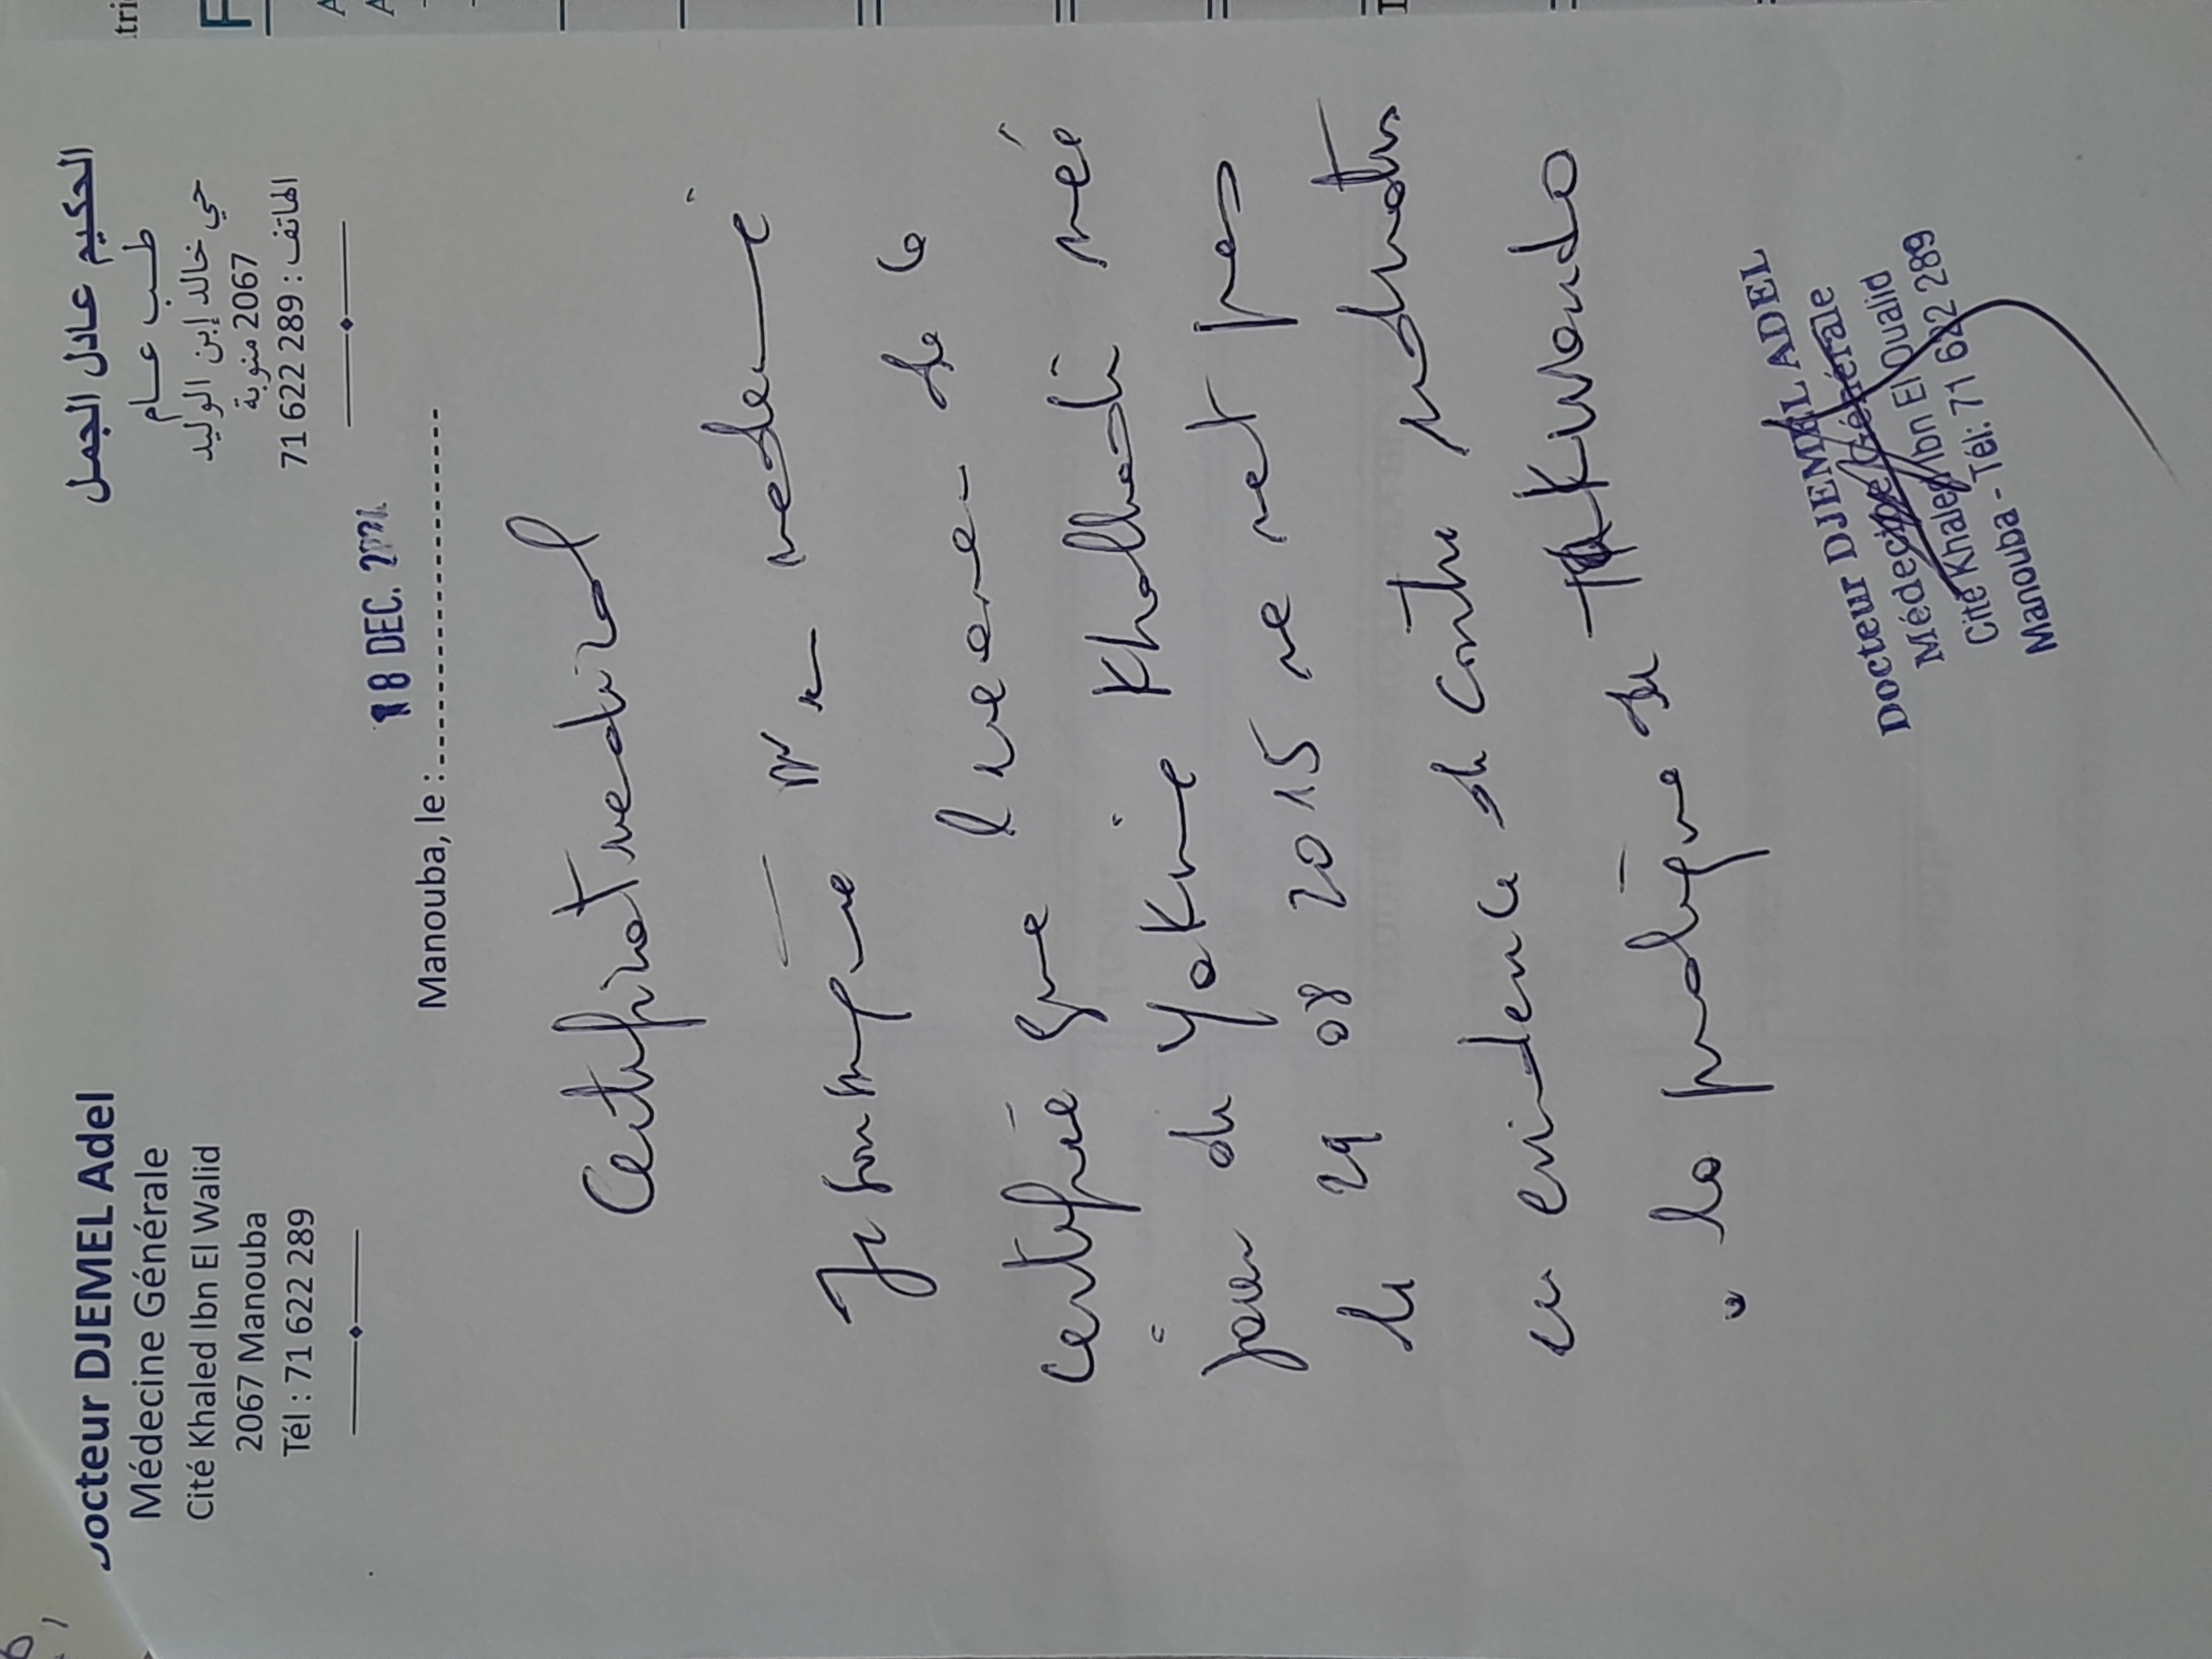 Docteur DJEMEL Adel
Médecine Générale
Cité Khaled Ibn El Walid
2067 Manouba
Tél : 71 622 289
الحكيم عادل الجمل
طب عام
حي خالد إبن الوليد
2067 منوبة
الهاتف : 289 622 71
18 DEC.
Manouba, le :
Certificat medical
Je soussigné
certifie que l'examen de ce
jour de Yakine Kholkhadi née
le 29 08 2015 ne met pas
en evidence de contre indication
a la pratique de Taekwondo
Docteur DJEMEL ADEL
Médecine Générale
Cité Khaled Ibn El Oualid
Manouba - Tél: 71 622 289